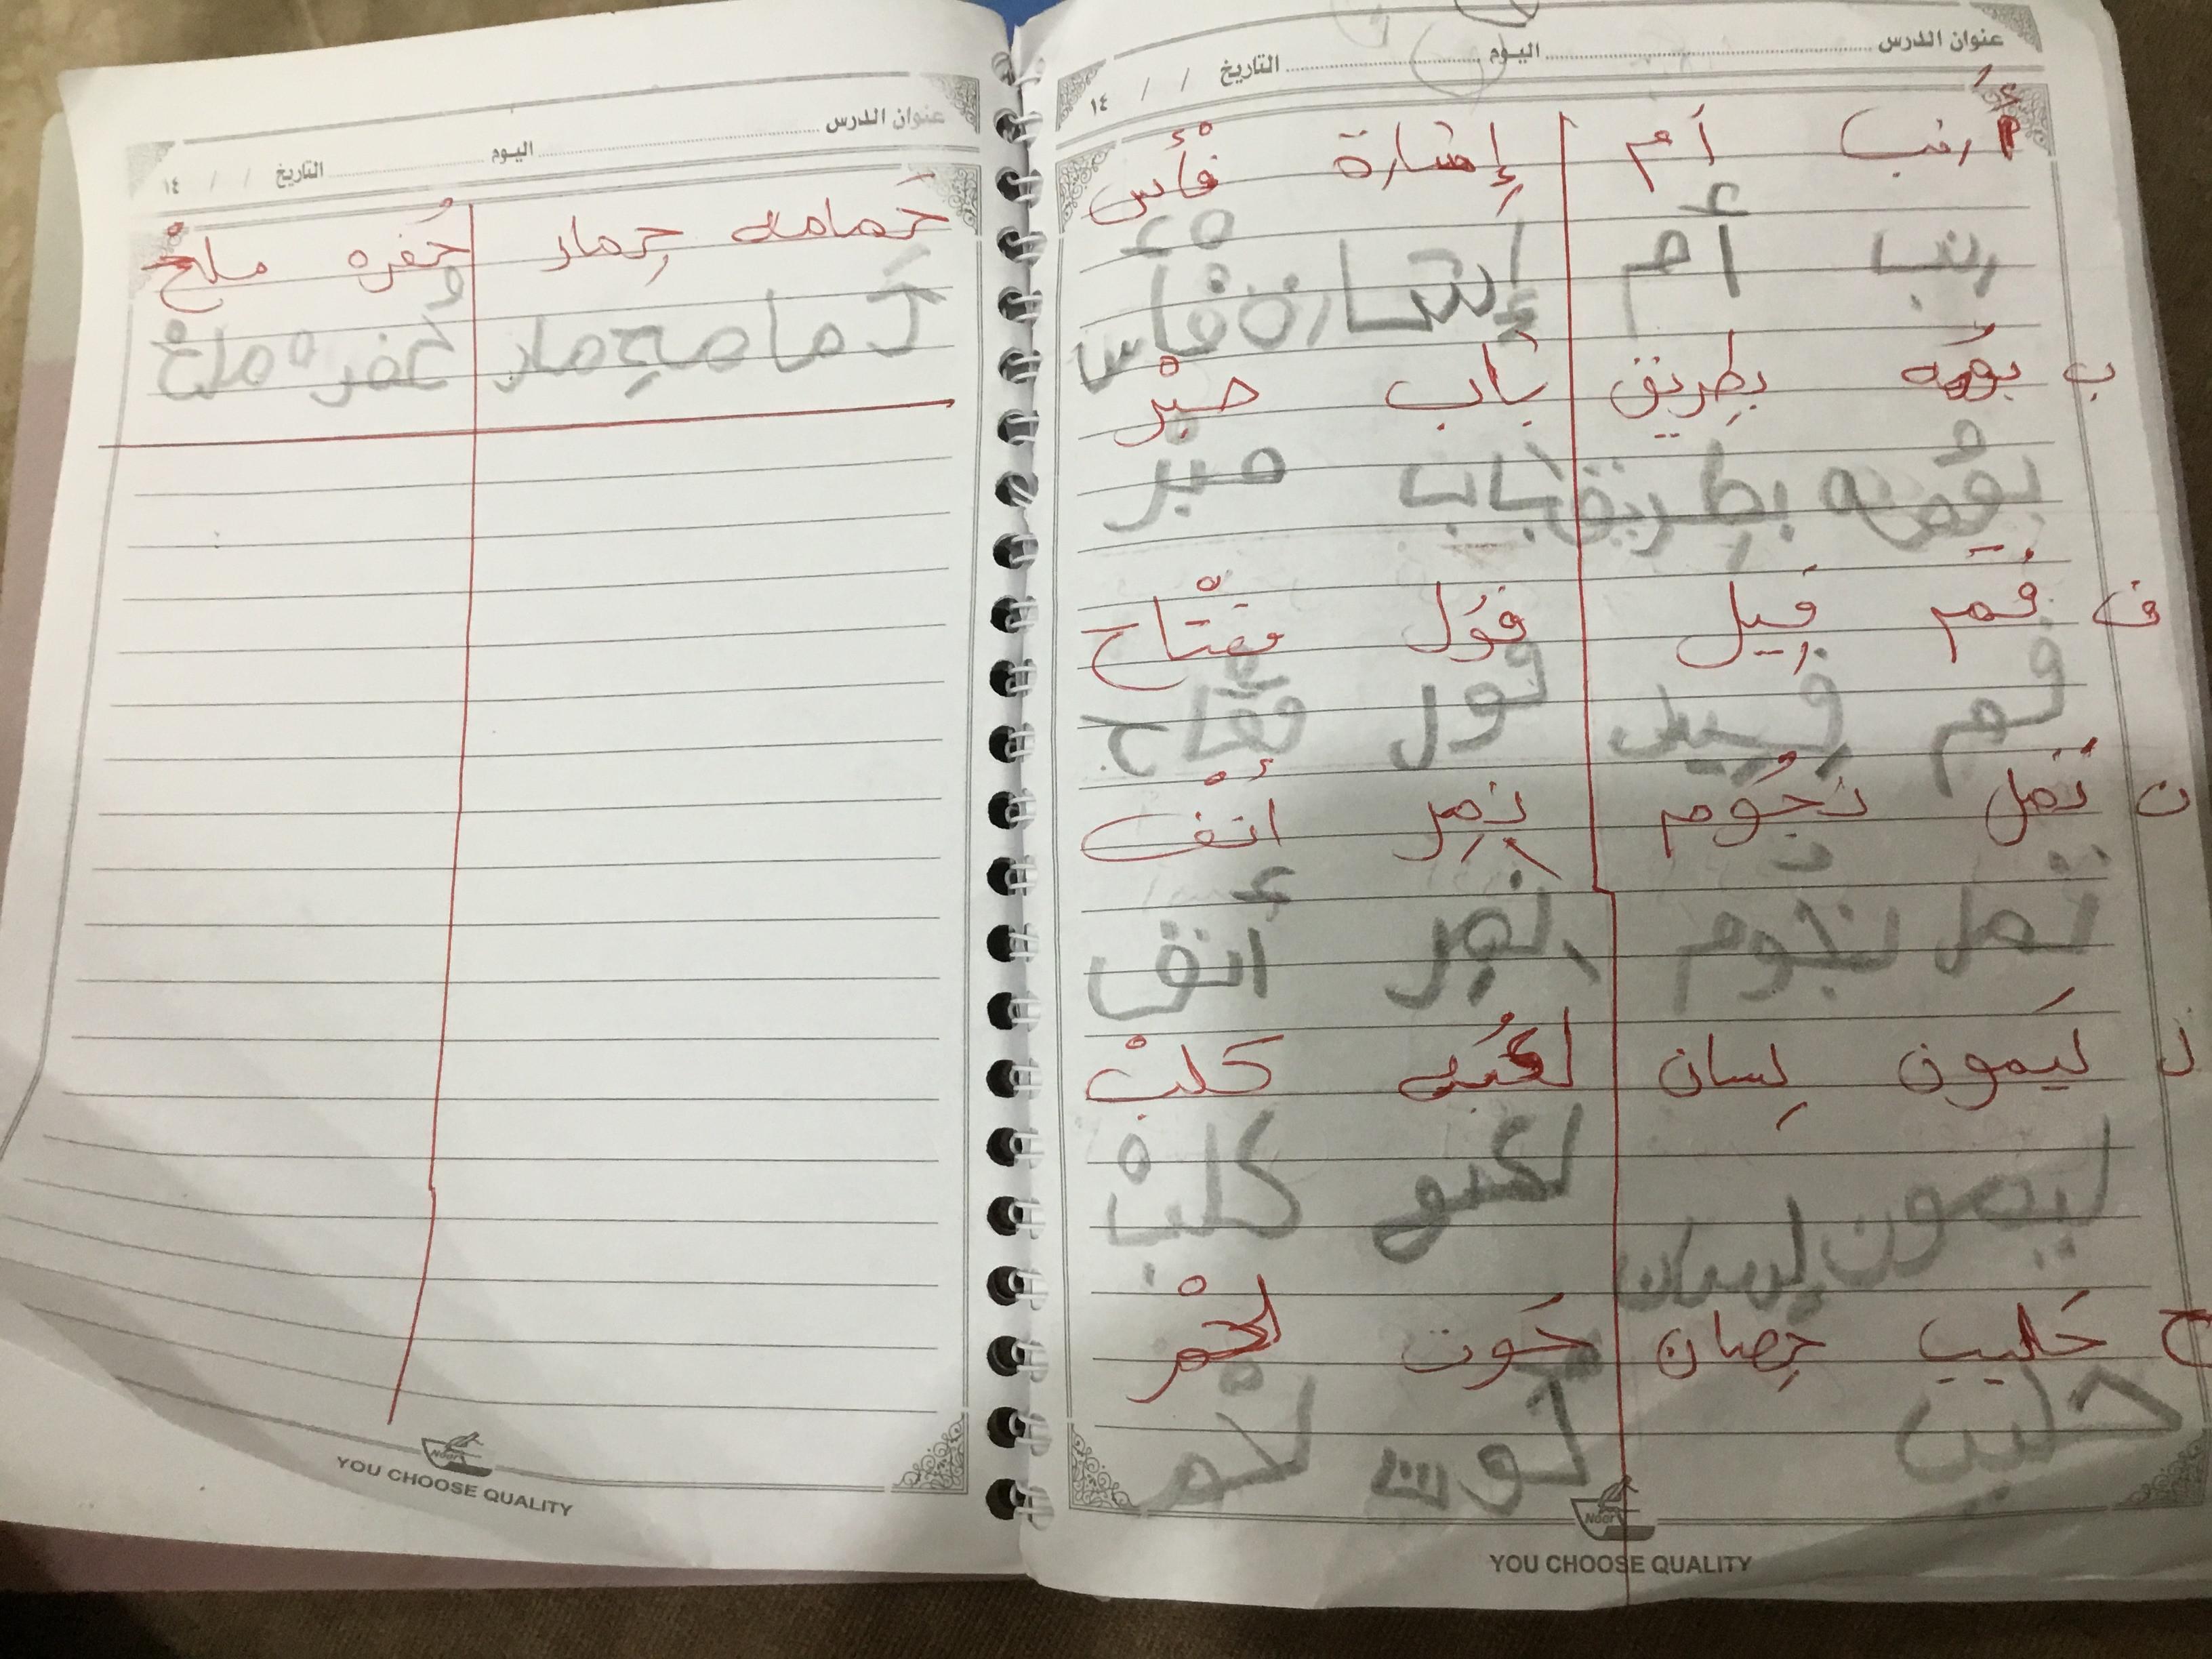 عنوان الدرس اليوم التاريخ / / ١٤
أَرنب أم إشارة فأْس
رنب أم إشارة فأس
ب بومَه بِطريق بَاب حبْر
بومه بِطريق باب حبْر
ف فَم فِيل فوُل مفْتاح
فم فِيل فول مفتاح
ن نَمل نُجوم نِمِر أنْف
نمل نجوم نمر أنف
ل لَيمون لِسان لعُبه كلبْ
ليمون لسان لعبه كلبْ
ح حَليب حِصان حُوت لحْم
حليب حوت لحم
YOU CHOOSE QUALITY
عنوان الدرس اليوم التاريخ / / ١٤
حَمامه حِمار حُفره ملحْ
حَمامه حِمار حُفره ملحْ
Noor
YOU CHOOSE QUALITY